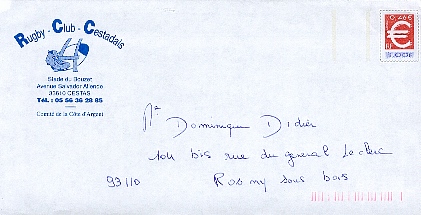 Rugby - Club - Cestadais
Stade du Bouzet
Avenue Salvador Allende
33610 CESTAS
Tél : 05 56 36 28 85
Comité de la Côte d'Argent
0,46 €
€
3,00F
Mr Dominique Didier
104 bis rue du general Leclerc
93110 Rosny sous bois